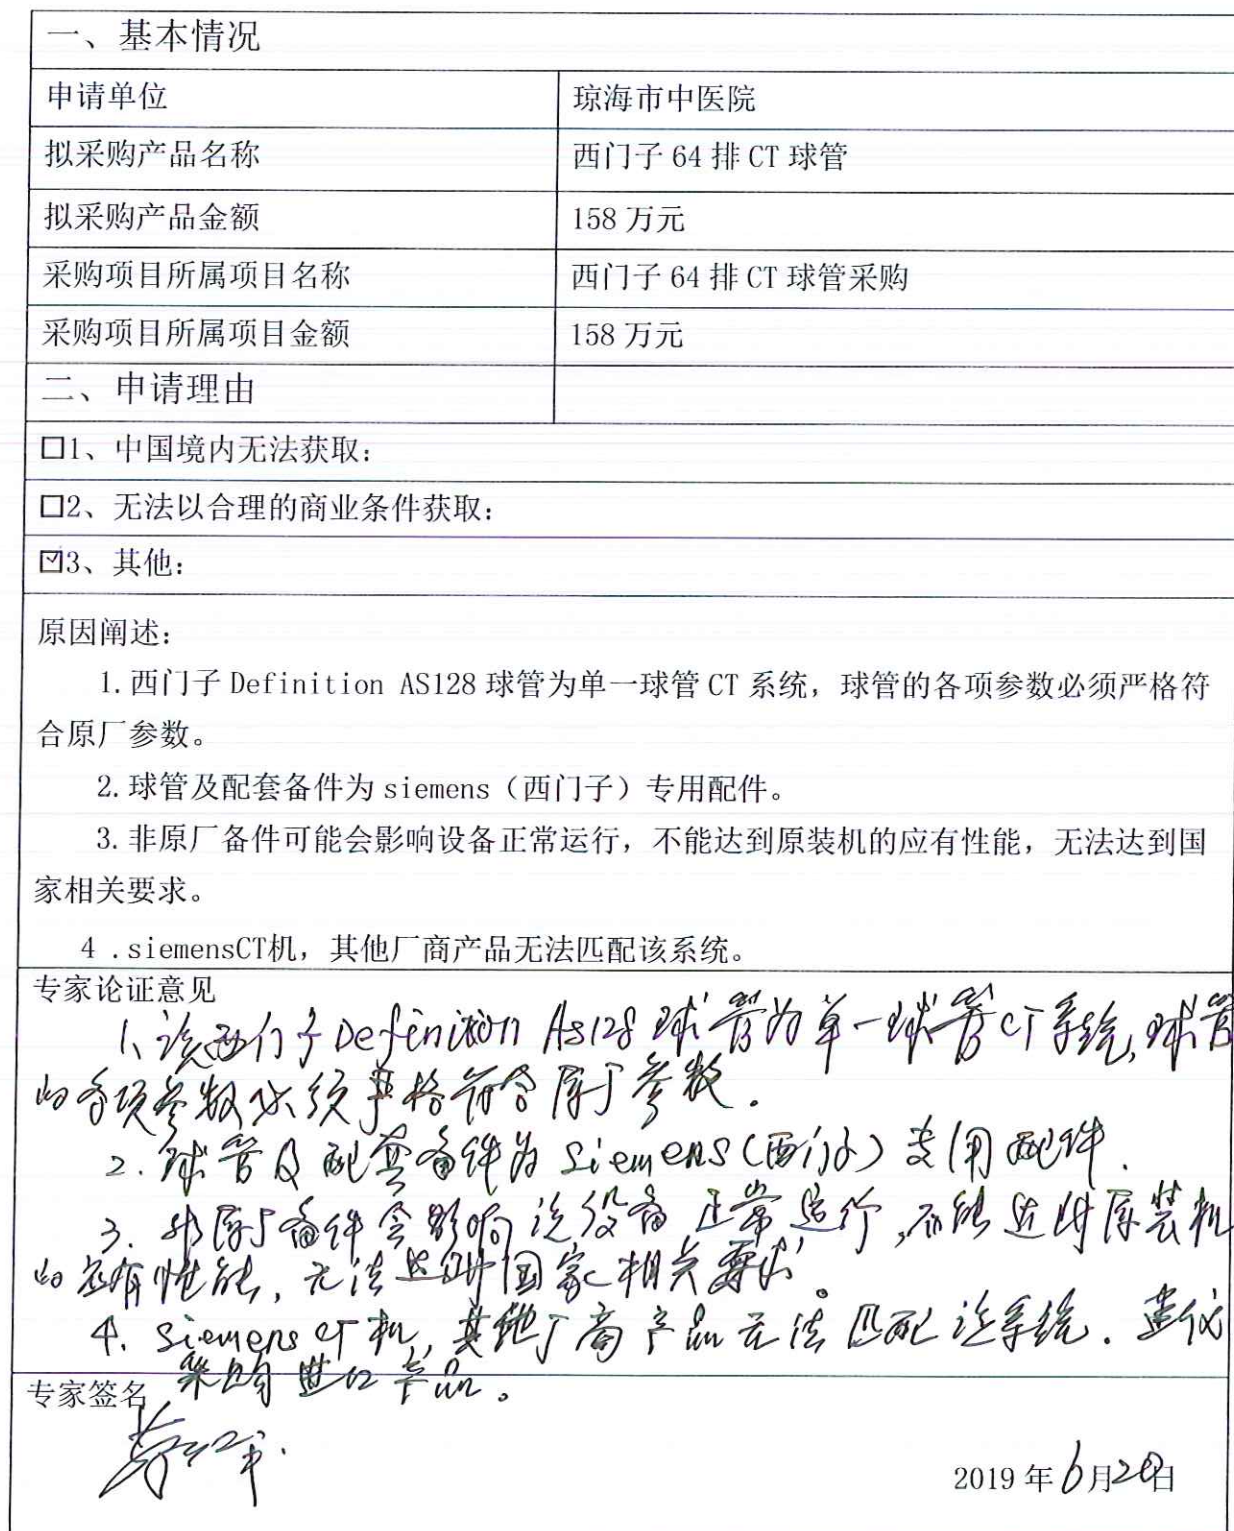 一、基本情况
申请单位 琼海市中医院
拟采购产品名称 西门子 64 排 CT 球管
拟采购产品金额 158 万元
采购项目所属项目名称 西门子 64 排 CT 球管采购
采购项目所属项目金额 158 万元
二、申请理由
☐1、中国境内无法获取：
☐2、无法以合理的商业条件获取：
☑3、其他：
原因阐述：
1.西门子 Definition AS128 球管为单一球管 CT 系统，球管的各项参数必须严格符
合原厂参数。
2.球管及配套备件为 siemens（西门子）专用配件。
3.非原厂备件可能会影响设备正常运行，不能达到原装机的应有性能，无法达到国
家相关要求。
4 .siemensCT机，其他厂商产品无法匹配该系统。
专家论证意见
1、该西门子 Definition As128 球管为单一球管CT系统,球管
的各项参数必须严格符合原厂参数.
2.球管及配套备件为 siemens(西门子)专用配件.
3.非原厂备件会影响该设备正常运行,不能达到原装机
的应有性能,无法达到国家相关要求。
4.siemens CT机,其他厂商产品无法匹配该系统.建议
采购进口产品。
专家签名
2019 年 6月20日